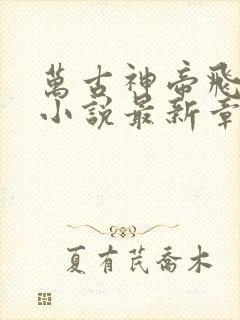 萬古神帝飛
小說最新章
夏有芪喬木